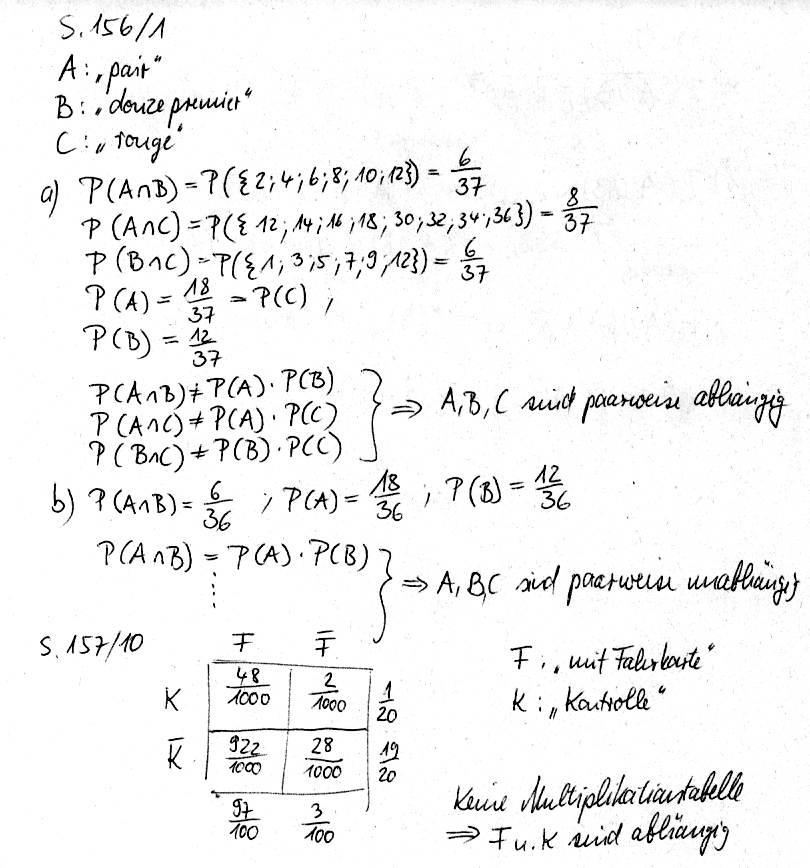 S. 156/1
A: „pair“
B: „douze premier“
C: „rouge“
a) P(A∩B) = P({2; 4; 6; 8; 10; 12}) = 6/37
P(A∩C) = P({12; 14; 16; 18; 30; 32; 34; 36}) = 8/37
P(B∩C) = P({1; 3; 5; 7; 9; 12}) = 6/37
P(A) = 18/37 = P(C) ;
P(B) = 12/37
P(A∩B) ≠ P(A) · P(B)
P(A∩C) ≠ P(A) · P(C) } ⇒ A, B, C sind paarweise abhängig
P(B∩C) ≠ P(B) · P(C)
b) P(A∩B) = 6/36 ; P(A) = 18/36 ; P(B) = 12/36
P(A∩B) = P(A) · P(B)
⋮ } ⇒ A, B, C sind paarweise unabhängig
S. 157/10 F F̅
K 48/1000 2/1000 1/20
K̅ 922/1000 28/1000 19/20
97/100 3/100
F: „mit Fahrkarte“
K: „Kontrolle“
Keine Multiplikationstabelle
⇒ F u. K sind abhängig